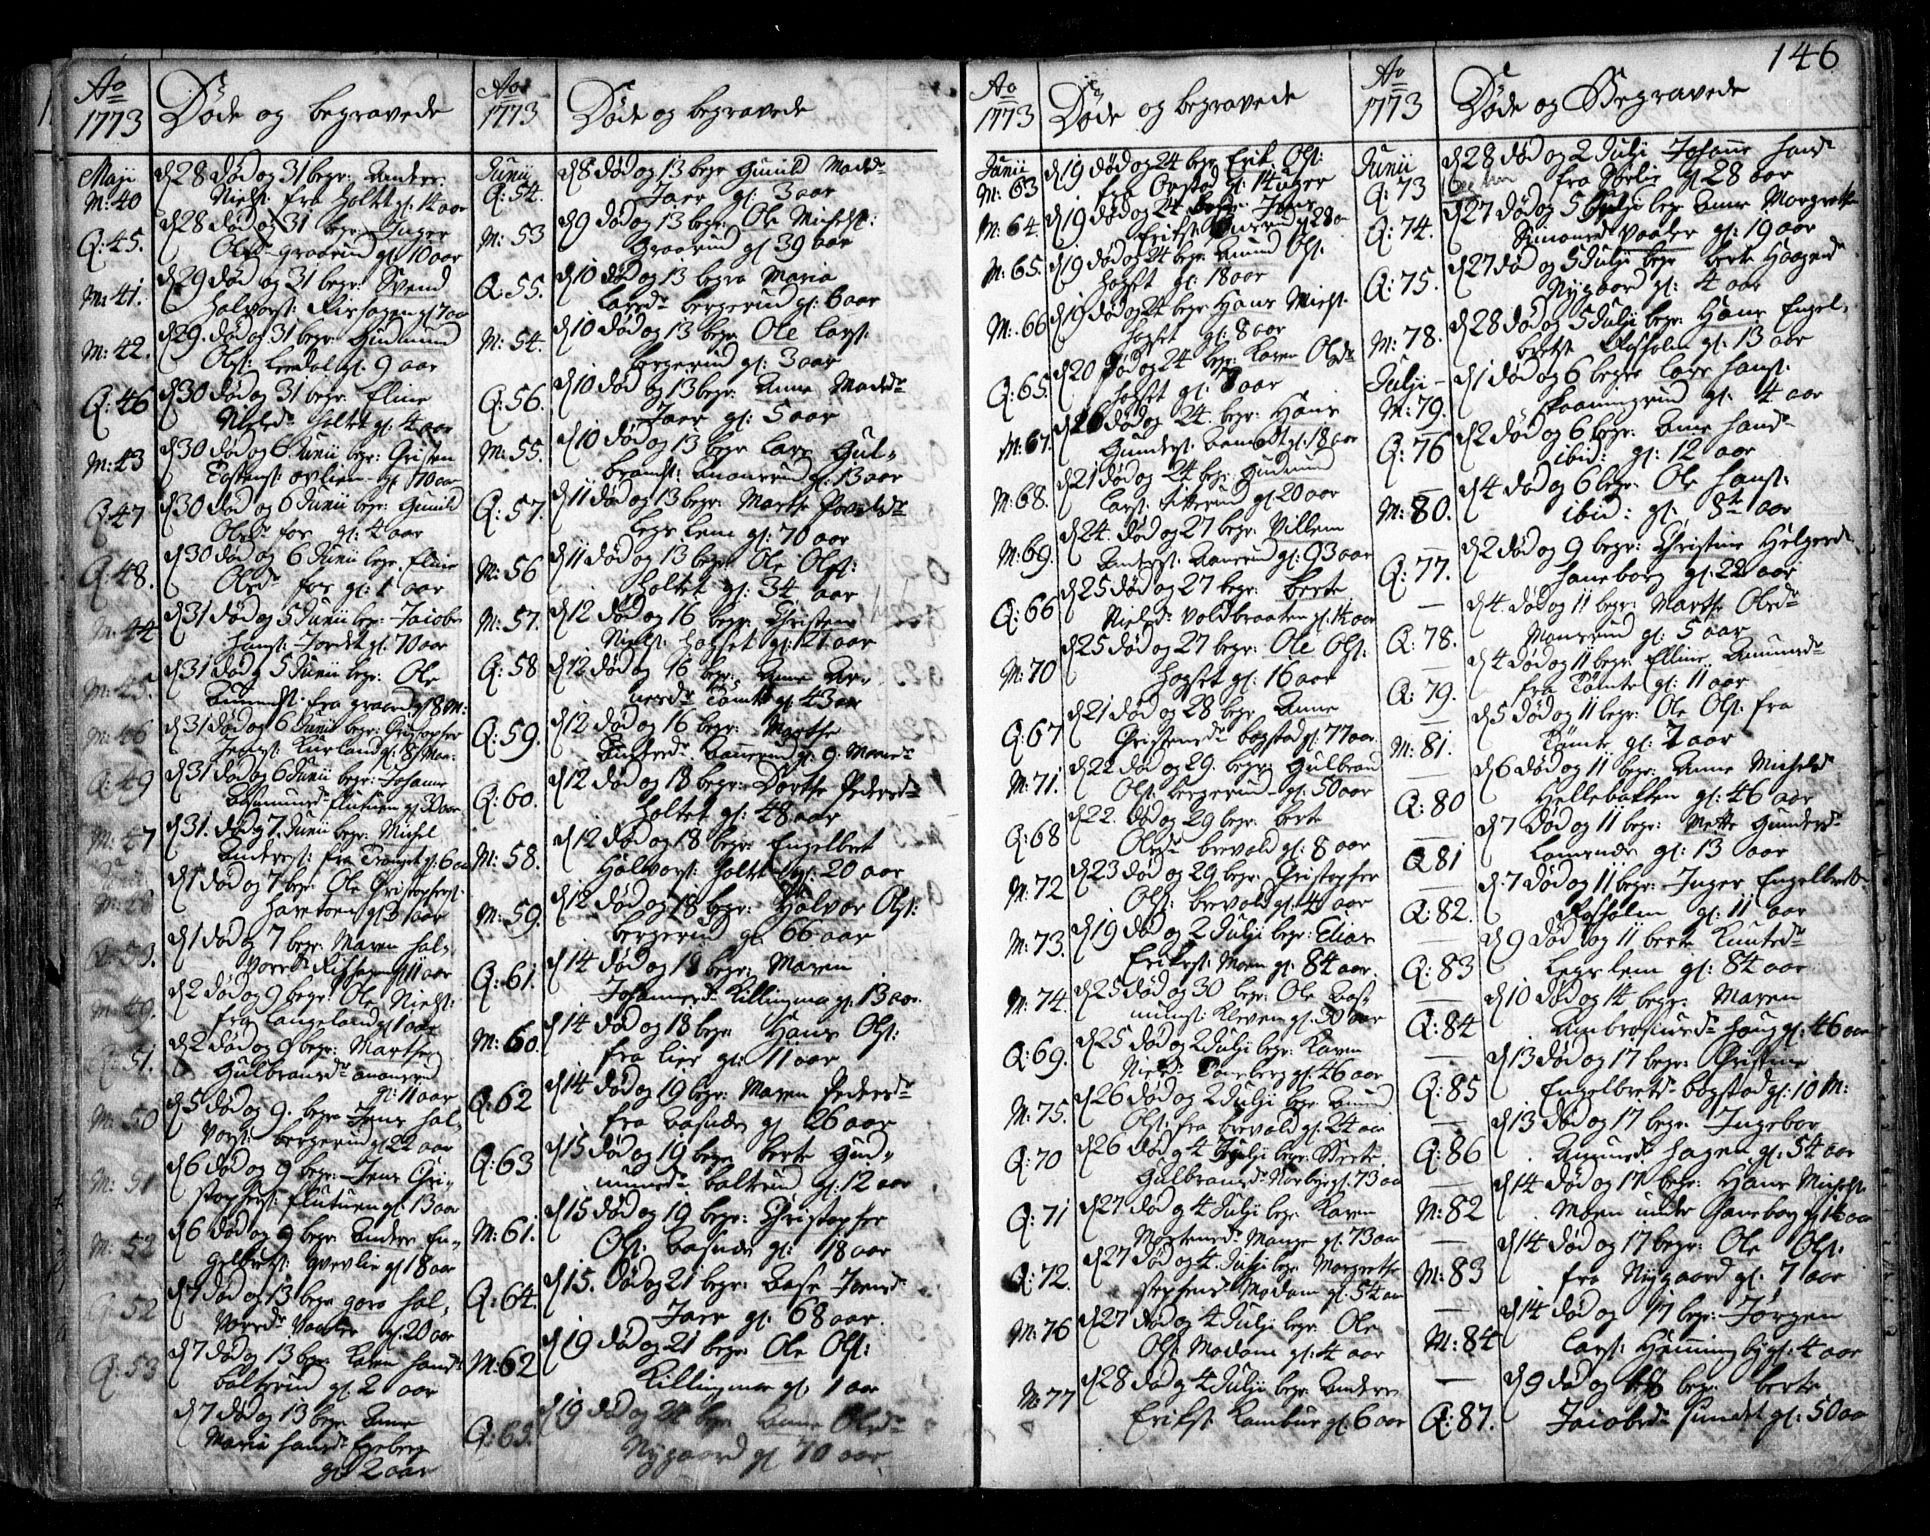 146
Ao
1773
Døde og begravede
Maji
M: 40
d 28 død og 31 begr: Anders
Niels: fra Holtet gl: 14 aar
Q: 45.
d 28 død og 31 begr: Inger
Olsd: Graarud gl: 10 aar
M: 41.
d 29 død og 31 begr: Svend
Halvors: Rishagen gl 7 aar
M: 42.
d 29. død og 31 begr: Gudmund
Ols: gl. 9 aar
Q: 46
d 30 død og 31 begr: Eline
Nielsd: Holtet gl: 4 aar
M: 43
d 30 død og 6 Junii begr:
gl 70 aar
Q: 47
d 30 død og 6 Junii begr: Gunild
Olsdr fos gl: 4 aar
Q: 48.
d 30 død og 6 Junii begr. Eline
Olsdr fos gl: 1 aar
M: 44
d 31 død og 5 Junii begr: Jacob
Hans: gl: 70 aar
M: 45.
d 31 død og 5 Junii begr: Ole
fra graarud gl 8 M:
M: 46
d 31 død og 6 Junii begr: Christopher
gl: 8 Mon:
Q: 49
d 31 død og 6 Junii begr: Johanne
Aasmundsdr Flutuen gl 30 aar
M: 47
d 31. død og 7. Junii begr: Michel
Anders: fra Tranget gl: 6 aar
d 1 død og 7 begr: Ole Christophers:
gl 6 aar
d 1 død og 7 begr: Maren Hal-
vorsd: Rishagen gl 11 aar
M: 49.
d 2 død og 9 begr: Ole Niels:
fra Langeland gl 1 aar
Q: 51.
d 2 død og 9 begr: Marthe
Gulbransdr
gl: 11 aar
M: 50
d 5 død og 9. begr Jens Hal-
vors: bergerud gl 22 aar
M: 51
d 6 død og 9 begr: Jens Chri-
stophers: Flutuen gl: 13 aar
M: 52
d 6 død og 9 begr: Anders En-
gelbrets: gl 18 aar
Q: 52
d 7 død og 13 begr goro Hal-
vorsdr Vaaler gl: 20 aar
Q: 53
d 7 død og 13 begr Karen Hansdr
Baltzrud gl 2 aar
d 7 død og 13 begr Anne
Maria Hansdr Egeberg
gl 2 aar
Ao
1773
Døde og begravede
Junii
Q: 54.
d 8 død og 13 begr Gunild Madsdr
Jaer gl: 3 aar
M: 53
d 9 død og 13 begr: Ole Michels:
Graarud gl 39 aar
Q: 55.
d 10 død og 13 begra Maria
Larsdr bergerud gl: 6 aar
M: 54.
d 10 død og 13 begr Ole Lars:
bergerud gl: 3 aar
Q: 56.
d 10 død og 13 begr: Anne Madsdr
Jaer gl: 5 aar
M: 55.
d 10 død og 13 begr Lars Gul-
brands: gl: 13 aar
Q: 57.
d 11 død og 13 begr: Marthe Povelsdr
Legslem gl: 70 aar
M: 56
d 11 død og 13 begr: Ole Ols:
Holtet gl: 34 aar
M: 57.
d 12 død og 16 begr: Christen
Niels: Hogset gl: 21 aar
Q: 58
d 12 død og 16 begr: Anne An-
dersdr Tømte gl 43 aar
Q: 59.
d 12 død og 16 begr: Marthe
Andersdr gl: 9 Maan:
Q: 60.
d 12 død og 18 begr: Dorthe Pedersdr
Holtet gl: 48 aar
M: 58.
d 12 død og 18 begr: Engelbret
Halvors: Holtet gl: 20 aar
M: 59.
d 12 død og 18 begr: Halvor Ols:
bergerud gl: 66 aar
Q: 61.
d 14 død og 18 begr: Maren
Johannesdr Killingmo gl: 13 aar
M: 60.
d 14 død og 18 begr Hans Ols:
fra lier gl: 11 aar
Q: 62
d 14 død og 19 begr: Maren Pedersdr
fra Basnæs gl 26 aar
Q: 63
d 15 død og 19 begr Berte Gud-
mundsdr Baltzrud gl: 12 aar
M: 61.
d 15 død og 19 begr: Christopher
Ols: Basnæs gl: 18 aar
Q: 64.
d 15. død og 21 begr: Aase Joensdr
Jaer gl: 68 aar
M: 62
d 19 død og 21 begr: Ole Ols:
Killingmo gl: 1 aar
Q: 65.
d 19 død og 24 begr: Anne Olsdr
Nygaard gl 70 aar
Ao
1773
Døde og begravede
Junii
M: 63
d 19 død og 24 begr Erik Ols:
fra gl: 14 uger
M: 64.
d 19 død og 24 begr: Jens
Eriks: gl 28 a
M: 65.
d 19 død og 24 begr: Amund Ols:
Hogset gl: 18 aar
M: 66
d 19 død og 24 begr Hans Niels:
Hogset gl: 8 aar
Q: 65.
d 20 død og 24 begr: Karen Olsdr
Hogset gl: 8 aar
M: 67.
d 20 død og 24. begr: Hans
Gunders: gl: 18 aar
M: 68.
d 21 død og 24 begr: Gudmund
Lars: gl 20 aar
M: 69.
d 24. død og 27 begr: Villem
Anders: gl: 93 aar
Q: 66
d 25 død og 27 begr: Berte
Nielsdr Voldbraaten gl: 14 aar
M: 70
d 25 død og 27 begr: Ole Ols:
Hogset gl: 16 aar
Q: 67
d 21 død og 28 begr Anne
Christensdr bogstad gl: 77 aar.
M: 71.
d 22 død og 29. begr: Gulbrand
Ols: bergerud gl: 50 aar
Q: 68
d 22. død og 29 begr: Berte
Olsdr brevold gl: 8 aar
M: 72
d 23 død og 29 begr: Christopher
Ols: brevold gl: 4 aar
M: 73.
d 19 død og 2 Julji begr: Elias
Eriks: Moen gl: 84 aar.
M: 74.
d 25 død og 30 begr: Ole Aas-
munds: Kleven gl: 30 aar
Q: 69.
d 25 død og 2 Julji begr: Karen
Nielsdr gl: 46 aar
M: 75.
d 26 død og 2 Julji begr Amund
Ols: fra brevold gl: 24 aar
Q: 70
d 26 død og 4 Julji begr: Berte
Gulbransdr Norbye gl: 73 aar
Q: 71
d 27 død og 4 Julji begr: Karen
Mortensdr Mangen gl: 73 aar
Q: 72.
d 27 død og 4. Julji begr: Margrethe
Stephensd Modam gl: 54 aar
M: 76
d 27 død og 4 Julji begr Ole
Ols: Modam gl: 4 aar
M: 77
d 28 død og 4 Julji begr Anders
Eriks: Kambur gl: 6 aar
Ao
1773
Døde og Begravede
Junii
Q: 73
d 28 død og 2 Julji Johanne Hansdr
fra gl 28 aar
Q: 74.
d 27 død og 5 Julji begr Anne Margrethe
Simonsdr Vaaler gl: 19 aar
Q: 75.
d 27 død og 5 Julji begr Berte Haagensd
Nygaard gl: 4 aar
M: 78.
d 28 død og 5 Julji begr: Hans Engel-
brets: Rosholm gl: 13 aar
Julji
M: 79.
d 1 død og 6 begr Lars Hans:
gl: 4 aar
Q: 76
d 2 død og 6 begr: Anne Hansdr
ibid: gl: 12 aar
M: 80.
d 4 død og 6 begr: Ole Hans:
ibid: gl: aar
Q: 77.
d 2 død og 9 begr: Christine Helgesdr
Haneborg gl: 22 aar
Q: 78.
d 4. død og 11 begr: Marthe Olsdr
Monsrud gl: 5 aar
Q: 79.
d 4 død og 11 begr: Elline Amundsdr
fra Tømte gl: 11 aar
M: 81.
d 5 død og 11 begr: Ole Ols: fra
Tømte gl: 7 aar
Q: 80
d 6 død og 11 begr: Anne Michelsdr
Hellebakken gl: 46 aar
Q 81
d 7 død og 11 begr: Mette Gundersdr
gl: 13 aar
Q: 82.
d 7 død og 11 begr: Inger Engelbretsdr
Rosholm gl: 11 aar
Q: 83
d 9 død og 11 berte Knutsdr
Legslem gl: 84 aar
Q: 84
d 10 død og 14 begr: Maren
Ambrosiusdr Haug gl: 46 aar
Q: 85
d 13 død og 17 begr: Christine
Engelbretsdr bogstad gl: 10 M:
Q: 86
d 13 død og 17 begr: Ingebor
hagen gl: 54 aar
M: 82
d 14 død og 17 begr: Hans Michels:
Moen under Haneborg gl 14 aar
M: 83
d 14 død og 17 begr: Ole Ols:
fra Nygaard gl: 7 aar
M: 84
d 14 død og 17 begr: Jørgen
Lars: Hemmingby gl: 4 aar
Q: 87.
d 9 død og 18 begr berte
Jacobsdr sundet gl: 50 aar